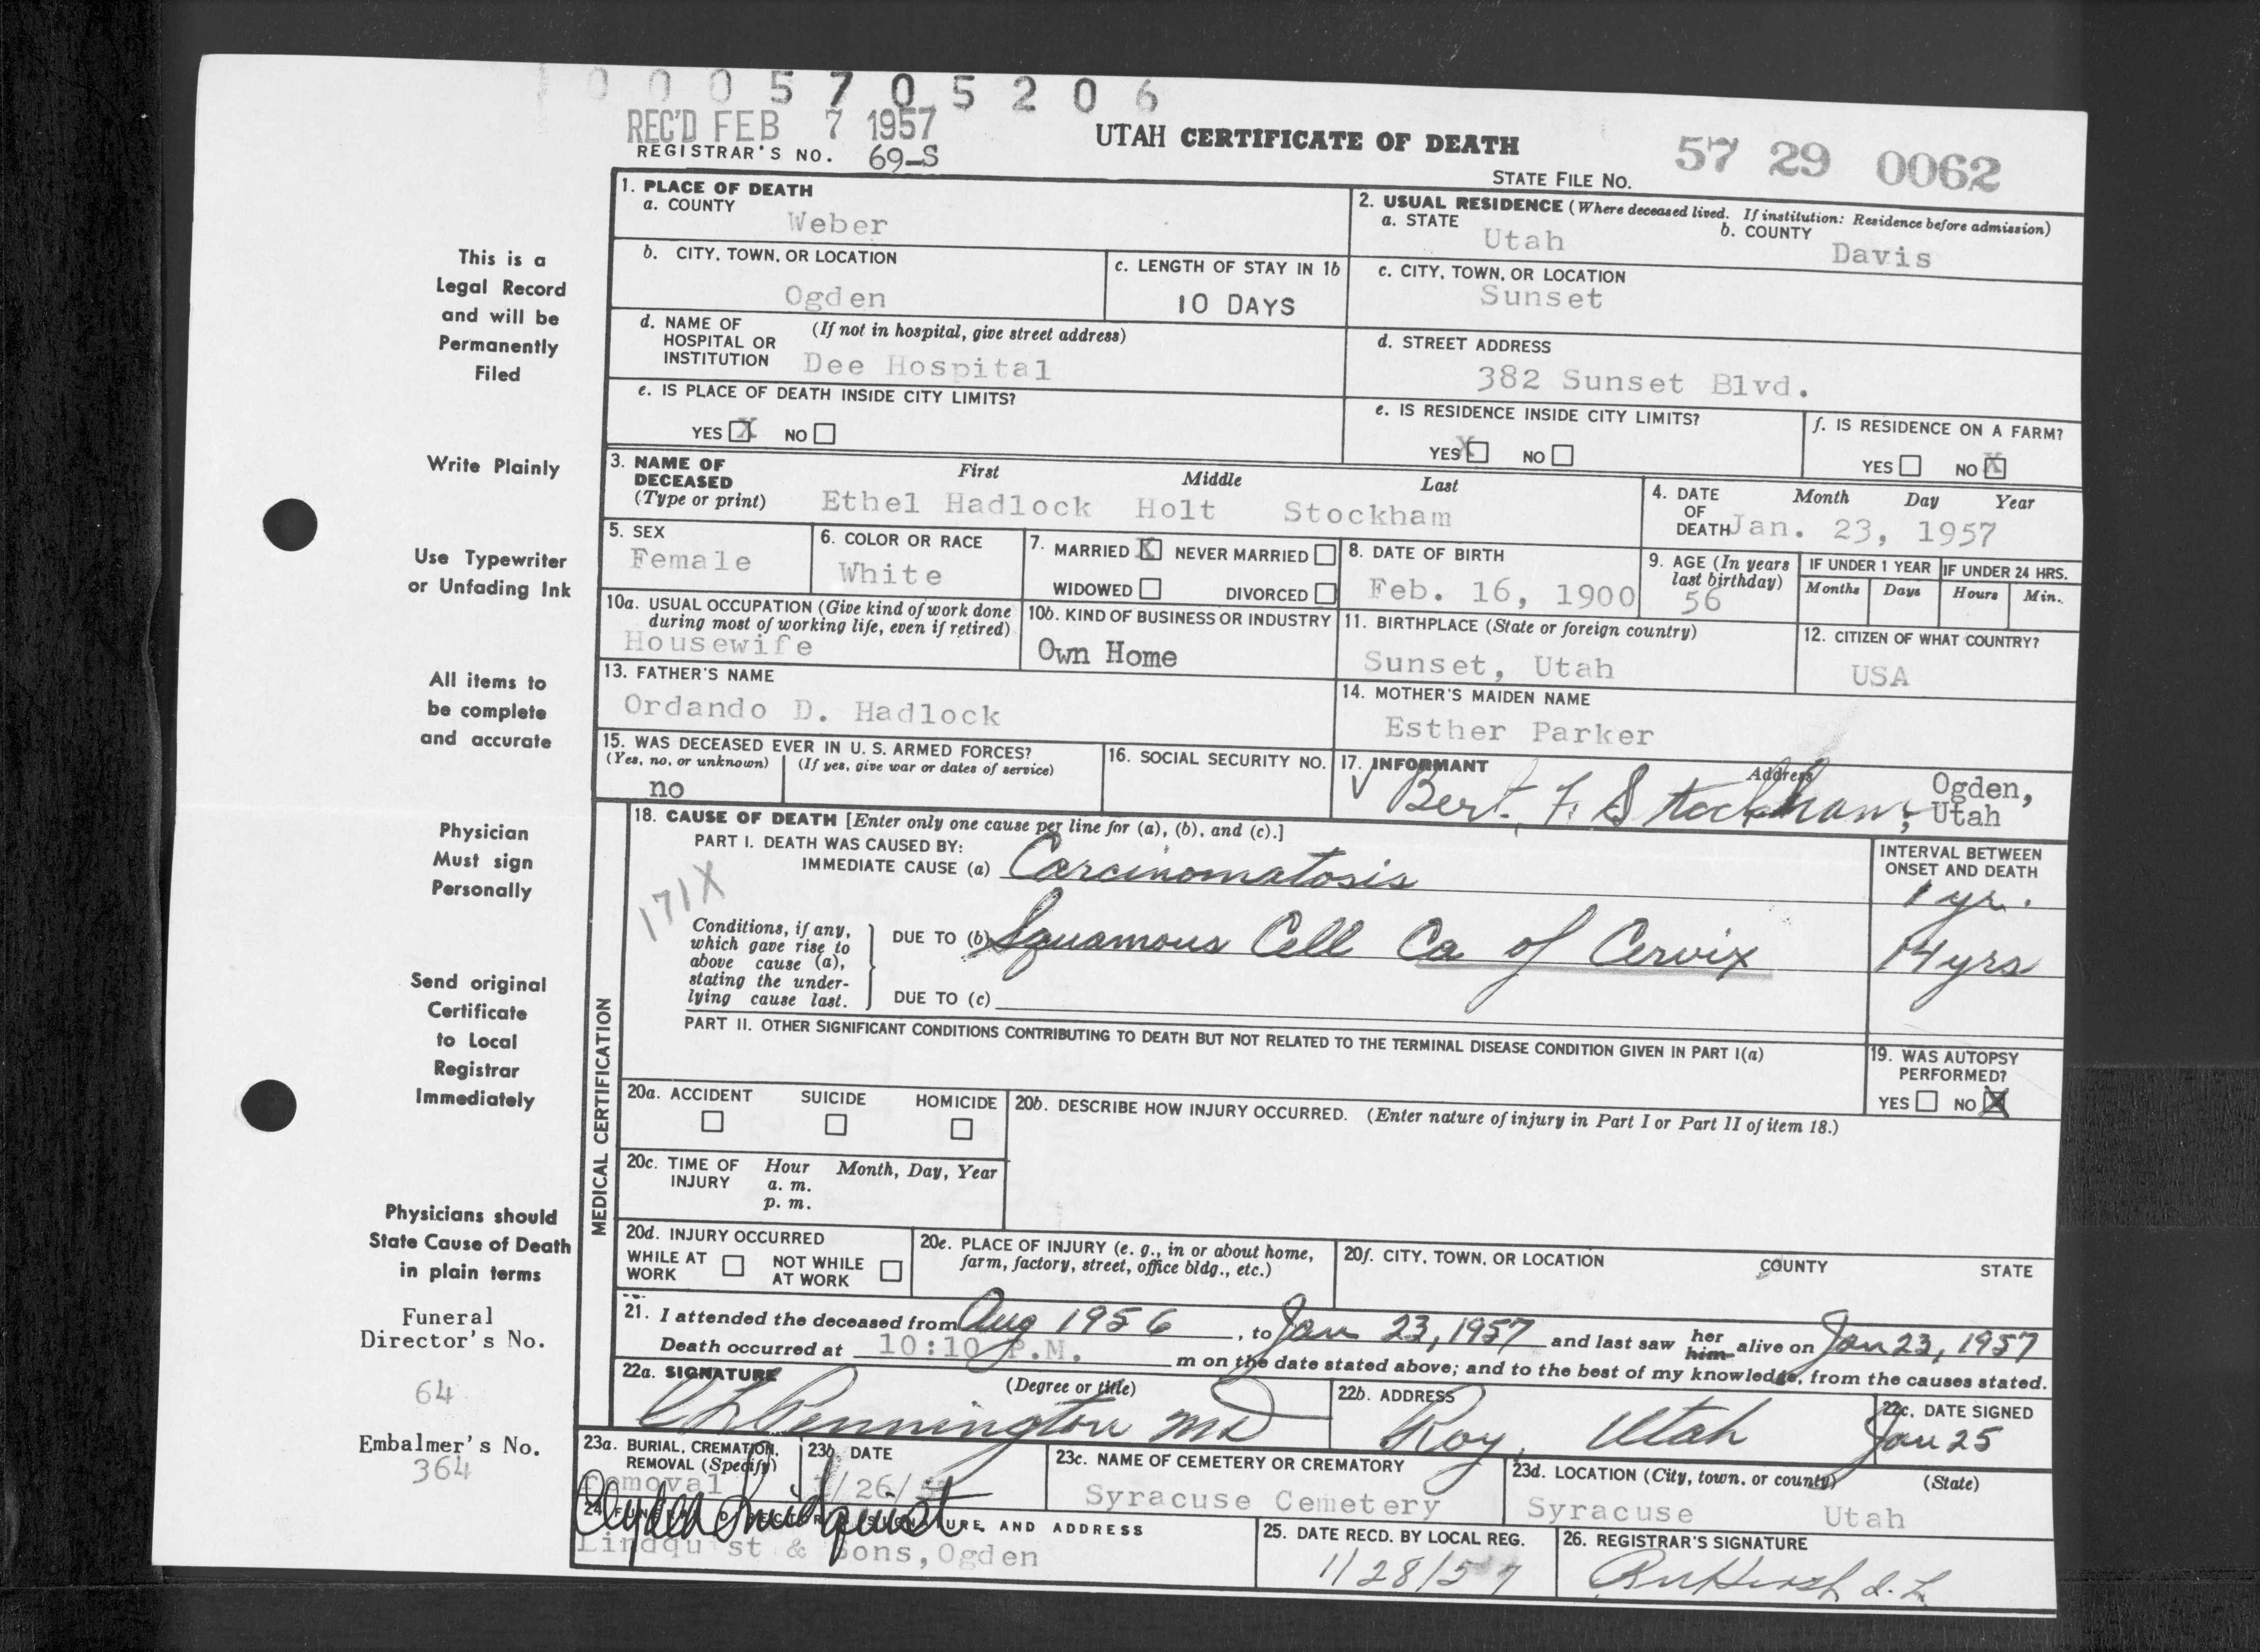 0005705206
REC'D FEB 7 1957
REGISTRAR'S NO. 69-S
UTAH CERTIFICATE OF DEATH
STATE FILE NO. 57 29 0062
This is a
Legal Record
and will be
Permanently
Filed
Write Plainly
Use Typewriter
or Unfading Ink
All items to
be complete
and accurate
Physician
Must sign
Personally
Send original
Certificate
to Local
Registrar
Immediately
Physicians should
State Cause of Death
in plain terms
Funeral
Director's No.
64
Embalmer's No.
364
1. PLACE OF DEATH
a. COUNTY
Weber
2. USUAL RESIDENCE (Where deceased lived. If institution: Residence before admission)
a. STATE
Utah
b. COUNTY
Davis
b. CITY, TOWN, OR LOCATION
Ogden
c. LENGTH OF STAY IN 1b
10 DAYS
c. CITY, TOWN, OR LOCATION
Sunset
d. NAME OF HOSPITAL OR INSTITUTION
(If not in hospital, give street address)
Dee Hospital
d. STREET ADDRESS
382 Sunset Blvd.
e. IS PLACE OF DEATH INSIDE CITY LIMITS?
YES X NO
e. IS RESIDENCE INSIDE CITY LIMITS?
YES X NO
f. IS RESIDENCE ON A FARM?
YES NO X
3. NAME OF DECEASED
(Type or print)
First Middle Last
Ethel Hadlock Holt Stockham
4. DATE OF DEATH
Month Day Year
Jan. 23, 1957
5. SEX
Female
6. COLOR OR RACE
White
7. MARRIED X NEVER MARRIED
WIDOWED DIVORCED
8. DATE OF BIRTH
Feb. 16, 1900
9. AGE (In years last birthday)
56
IF UNDER 1 YEAR
Months Days
IF UNDER 24 HRS.
Hours Min.
10a. USUAL OCCUPATION (Give kind of work done
during most of working life, even if retired)
Housewife
10b. KIND OF BUSINESS OR INDUSTRY
Own Home
11. BIRTHPLACE (State or foreign country)
Sunset, Utah
12. CITIZEN OF WHAT COUNTRY?
USA
13. FATHER'S NAME
Ordando D. Hadlock
14. MOTHER'S MAIDEN NAME
Esther Parker
15. WAS DECEASED EVER IN U. S. ARMED FORCES?
(Yes, no, or unknown) (If yes, give war or dates of service)
no
16. SOCIAL SECURITY NO.
17. INFORMANT Address
Bert. F. Stockham, Ogden,
Utah
MEDICAL CERTIFICATION
18. CAUSE OF DEATH [Enter only one cause per line for (a), (b), and (c).]
PART I. DEATH WAS CAUSED BY:
IMMEDIATE CAUSE (a) Carcinomatosis
INTERVAL BETWEEN
ONSET AND DEATH
1 yr.
171X
Conditions, if any,
which gave rise to
above cause (a),
stating the under-
lying cause last.
DUE TO (b) Squamous Cell Ca of Cervix
14 yrs
DUE TO (c)
PART II. OTHER SIGNIFICANT CONDITIONS CONTRIBUTING TO DEATH BUT NOT RELATED TO THE TERMINAL DISEASE CONDITION GIVEN IN PART I(a)
19. WAS AUTOPSY
PERFORMED?
YES NO X
20a. ACCIDENT SUICIDE HOMICIDE
20b. DESCRIBE HOW INJURY OCCURRED. (Enter nature of injury in Part I or Part II of item 18.)
20c. TIME OF INJURY
Hour Month, Day, Year
a. m.
p. m.
20d. INJURY OCCURRED
WHILE AT WORK NOT WHILE AT WORK
20e. PLACE OF INJURY (e. g., in or about home,
farm, factory, street, office bldg., etc.)
20f. CITY, TOWN, OR LOCATION COUNTY STATE
21. I attended the deceased from Aug 1956, to Jan 23, 1957 and last saw her him alive on Jan 23, 1957
Death occurred at 10:10 P.M. m on the date stated above; and to the best of my knowledge, from the causes stated.
22a. SIGNATURE (Degree or title)
Pennington MD
22b. ADDRESS
Roy, Utah
22c. DATE SIGNED
Jan 25
23a. BURIAL, CREMATION,
REMOVAL (Specify)
removal
23b. DATE
1/26/57
23c. NAME OF CEMETERY OR CREMATORY
Syracuse Cemetery
23d. LOCATION (City, town, or county) (State)
Syracuse Utah
24. FUNERAL DIRECTOR'S SIGNATURE AND ADDRESS
Lindquist & Sons, Ogden
25. DATE RECD. BY LOCAL REG.
1/28/57
26. REGISTRAR'S SIGNATURE